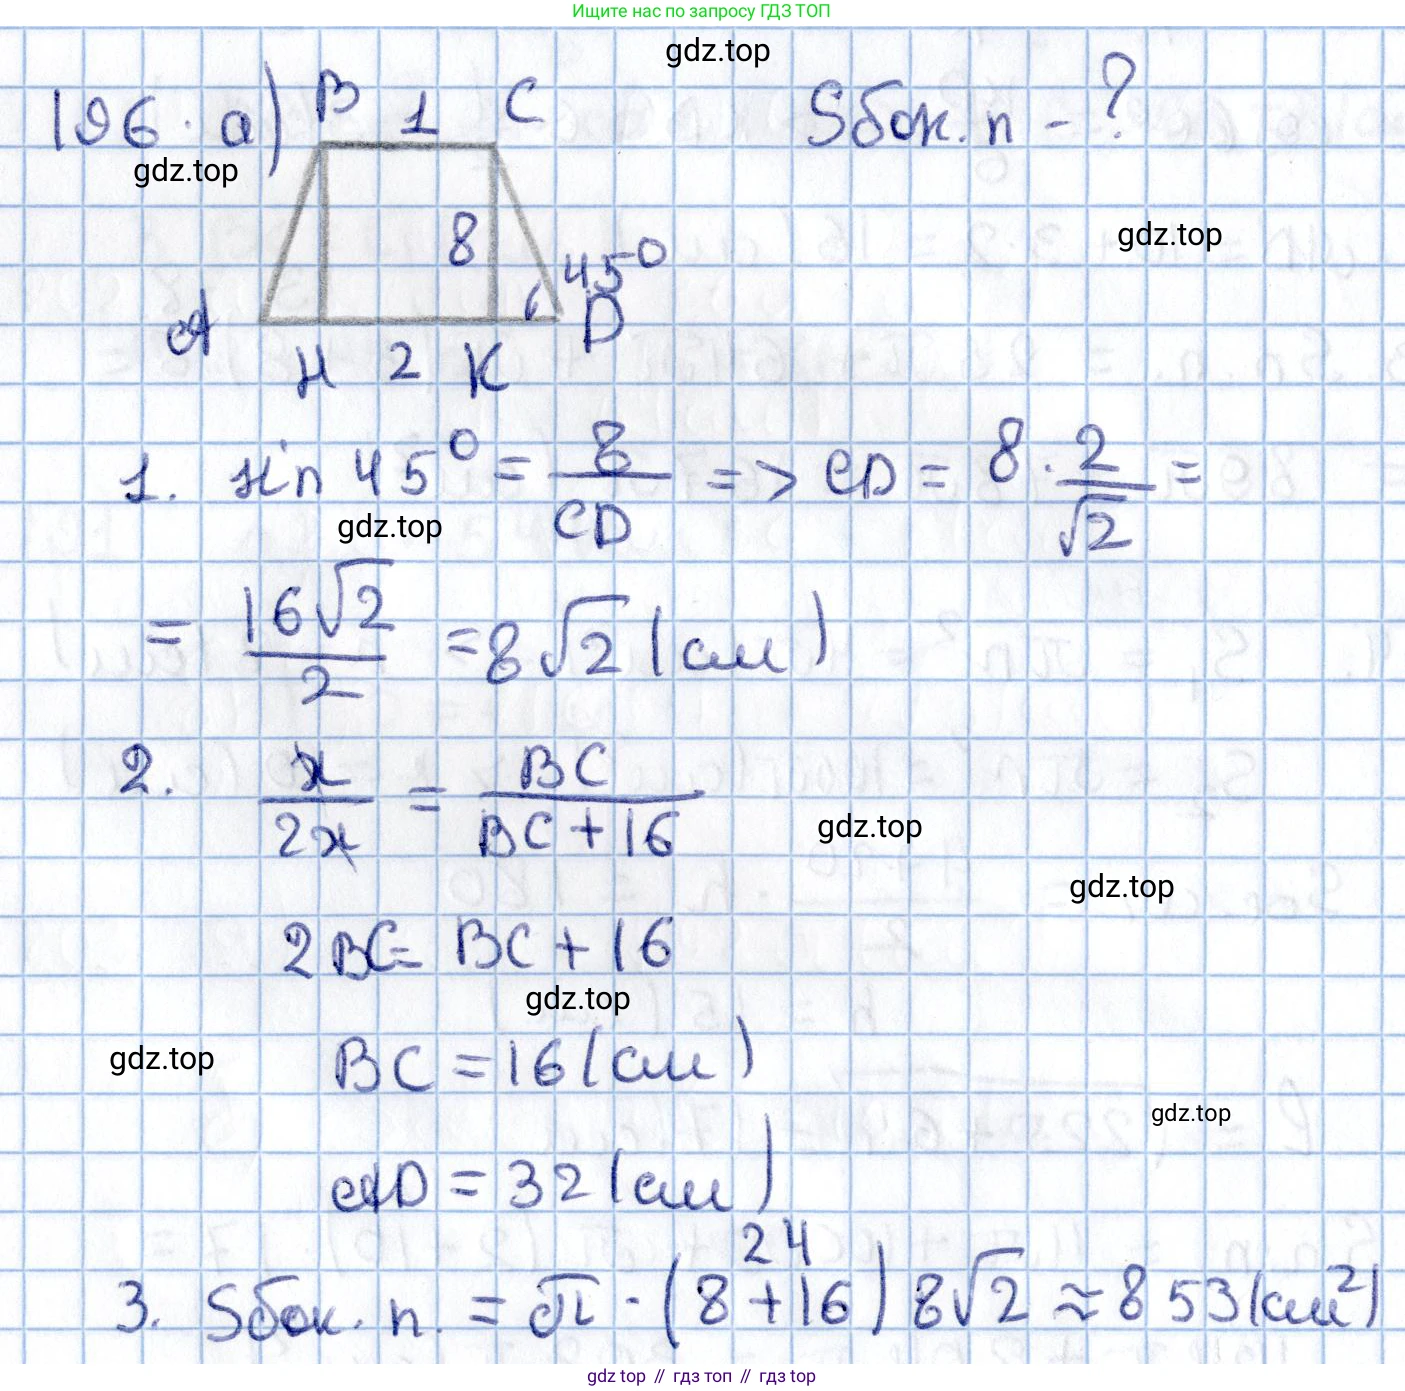 Ищите нас по запросу ГДЗ ТОП
gdz.top
196. а) B 1 C Sбок. п - ?
gdz.top
8
gdz.top
45°
A D
H 2 K
1. sin 45° = 8/CD => CD = 8 · 2/√2 =
gdz.top
= 16√2/2 = 8√2 (см)
2. x/2x = BC/BC + 16
gdz.top
gdz.top
2BC = BC + 16
gdz.top
BC = 16 (см)
gdz.top
gdz.top
AD = 32 (см)
24
3. Sбок. п. = π · (8 + 16) 8√2 ≈ 853 (см²)
gdz.top // гдз топ // гдз.top